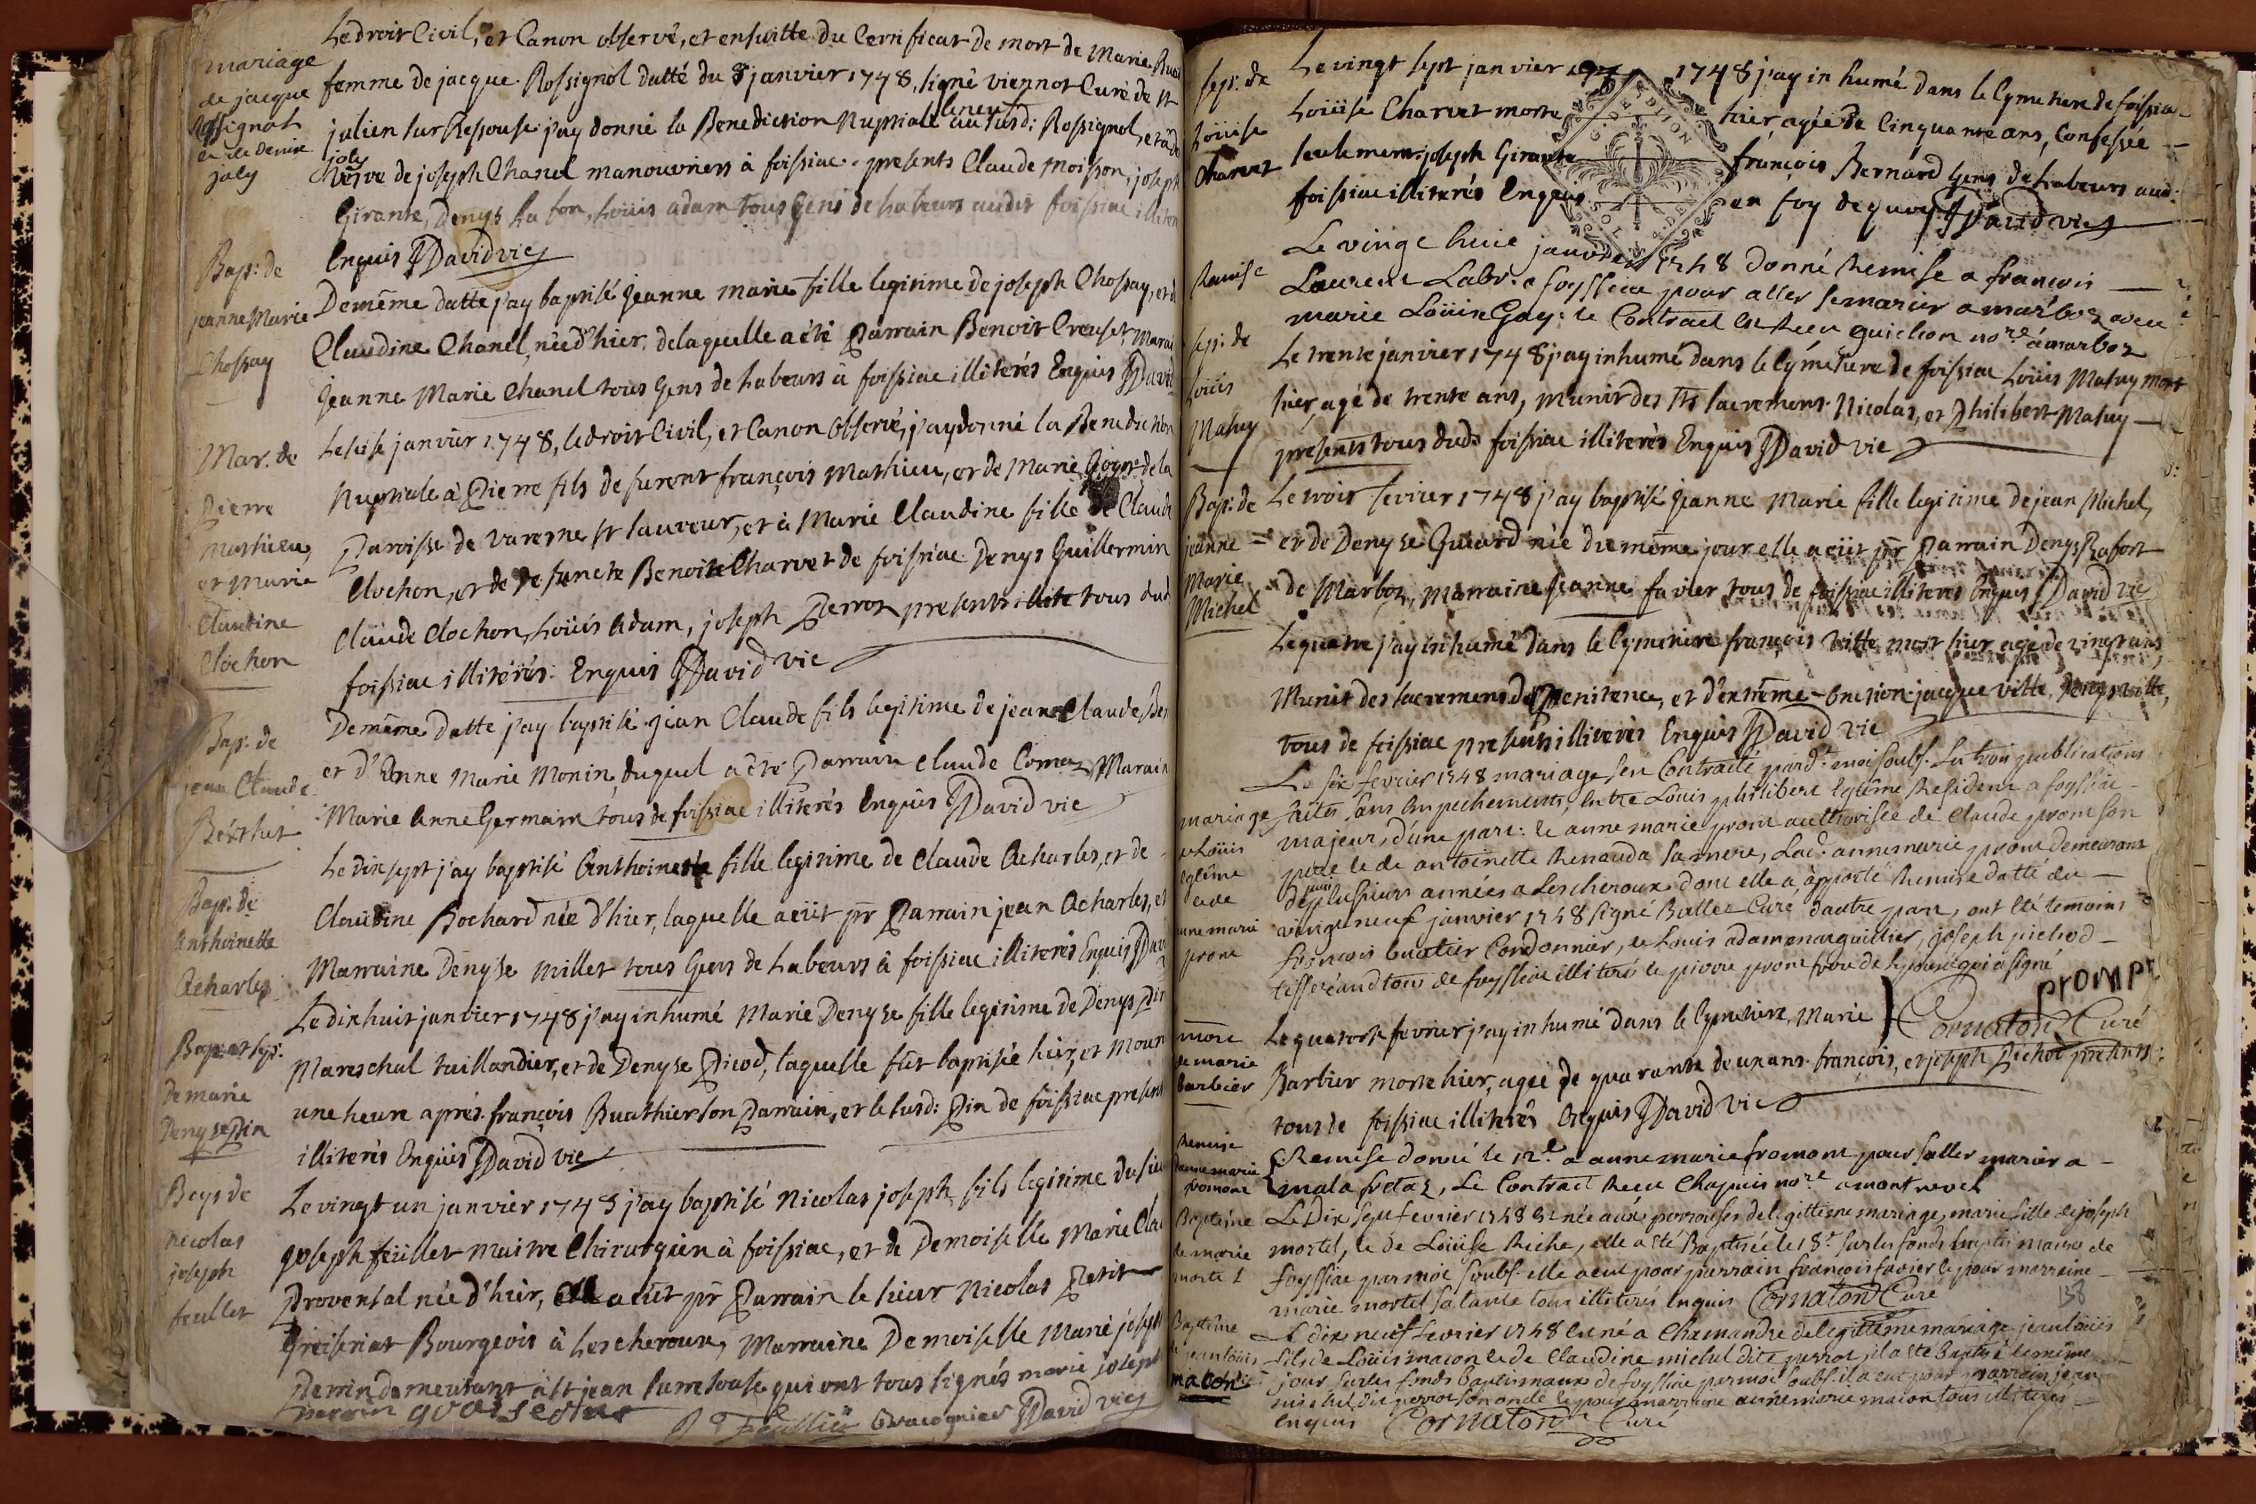 mariage
de jacque
Rossignol
et de Denise
joly
Le droit Civil, et Canon observé, et ensuitte du Certificat de mort de Marie
femme de jacque Rossignol datté du 8 janvier 1748, signé viennot Curé de st
julien sur Ressouse j'ay donné la Benediction Nuptiale au susd: Rossignol, et à
joly
vefve de joseph Chanel manouvriers à foissiac. presents Claude Moisson, joseph
Girante, Denys La fon, Loüis adam tous Gens de Labeurs audit foissiac illiterés
Enquis David vic
Bap: de
jeanne Marie
Chossay
De même datte j'ay baptisé jeanne marie fille legitime de joseph Chossay, et de
Claudine Chanel, née d'hier, de laquelle a été Parrain Benoit Creuset, Marai
jeanne Marie Chanel tous Gens de Labeurs à foissiac illiterés Enquis David
Mar. de
Pierre
Mathieu,
et Marie
Claudine
Clochon
Le seise janvier 1748, le droit Civil, et Canon Observé, j'ay donné la Benediction
Nuptiale à Pierre fils de furent françois Mathieu, et de Marie de la
Paroisse de Varenne st sauveur, et à Marie Claudine fille de Claude
Clochon, et de defuncte Benoite Charvet de foissiac Denys Guillermin
Claude Clochon, Loüis Adam, joseph Perrot presents tous dud
foissiac illiterés: Enquis David vic
Bap: de
jean Claude
Berthet
De même datte j'ay baptisé jean Claude fils legitime de jean Claude Ber
et d'Anne Marie Monin, duquel a été Parrain Claude Comaz, Marain
Marie Anne Germain tous de foissiac illiterés Enquis David vic
Bap: de
Anthoinette
Acharles
Le dix sept j'ay baptisé Anthoinette fille legitime de Claude Acharles, et de
Claudine Bochard née d'hier, laquelle a eüt pr Parrain jean Acharles, et
Marraine Denyse Millet tous Gens de Labeurs à foissiac illiterés Enquis Dav
Bap: et sep:
de marie
Denyse Pin
Le dix huit janvier 1748 j'ay inhumé Marie Denyse fille legitime de Denys Pin
Mareschal taillandier, et de Denyse Picod, laquelle fût baptisée hier, et mourut
une heure aprés. françois Buathier son Parrain, et le susd: Pin de foissiac presents
illiterés Enquis David vic
Bap: de
nicolas
joseph
feullet
Le vingt un janvier 1748 j'ay baptisé Nicolas joseph fils legitime du sieur
joseph feüillet maitre Chirurgien à foissiac, et de Demoiselle Marie Clau
Provensal née d'hier, a eüt pr Parrain le sieur Nicolas Petit
Bourgeois à Lescheroux, Marraine Demoiselle Marie joseph
Perrin demeurant à st jean sur resouse, qui ont tous signés marie joseph
perrin
David vic
Sep: de
Loüise
Charvet
Le vingt sept janvier 1748 j'ay inhumé dans le Cymetiere de foissia-
Loüise Charvet morte hier agée de Cinquante ans, Confessée
seulement, joseph Girante françois Bernard Gens de Labeurs aud:
foissiac illiterés Enquis en foy de quoy David vic
Remise
Le vingt huit janvier 1748 donné Remise a francois
Laurent Labr. a foyssiac pour aller se marier a marboz avec
marie Loüise Gay: le Contract est Receu guichon nore a marboz
Sep: de
Loüis
Mahuy
Le trente janvier 1748 j'ay inhumé dans le Cymetiere de foissiac Loüis Mahuy mort
hier, agé de trente ans, munit des sts sacrements. Nicolas, et Philibert Mahuy
presents tous dud: foissiac illiterés Enquis David vic
Bap: de
jeanne
Marie
Michel
Le trois fevrier 1748 j'ay baptisé jeanne Marie fille legitime de jean Michel,
et de Denyse Guiard née du même jour elle a eüt pr Parrain Denys Rafort
de Marboz, marraine jeanne favier tous de foissiac illiterés Enquis David vic
Le quatre j'ay inhumé dans le Cymetiere françois Vitte mort hier agé de vingt ans,
Munit des sacremens de Penitence, et d'extrême-Onction. jacque vitte, Denys vitte,
tous de foissiac presents illiterés Enquis David vic
mariage
de Loüis
eglême
et de
anne marie
prom
Le six fevrier 1748 mariage Contracté moi soubs. Les trois publications
faites sans empechements, entre Louis philibert Eglême Resident a foyssiac
majeur, d'une part: et anne marie prom authorisée de Claude prom son
pere et de antoinette Renauda sa mere, Lad. anne marie prom demeurant
depuis plusieurs années a Lescheroux dont elle a apporté Remise datté du
vingt neuf janvier 1748 signé Ballet Curé d'autre part, ont été temoins
francois buatier Cordonnier, et Louis adam marguillier, joseph pichod
tisserand tous de foyssiac illiterés et pierre prom frere de l'epouse qui a signé
prompt
Cornaton Curé
mort
de marie
barbier
Le quatorze fevrier j'ay inhumé dans le Cymetiere, Marie
Barbier morte hier, agée de quarante deux ans. françois, et joseph Pichot presents
tous de foissiac illiterés Enquis David vic
Remise
d'anne marie
fromont
Remise donné le 12e a anne marie fromont pour s'aller marier a
malafretaz, Le Contract Receu Chapuis nore a montrevel
Baptême
de marie
mortel
Le Dix sept fevrier 1748 est née de legittime mariage, marie fille de joseph
mortel, et de Loüise Riche, elle a été Baptisée le 18e sur les fonds baptismaux de
foyssiac par moi soubs. elle a eut pour parrain francois favier et pour marraine
marie mortel sa tante tous illiterés enquis Cornaton Curé
138
Baptême
de jean Loüis
macon
Le dix neuf fevrier 1748 est né a Chamandre de legittime mariage jean Loüis
fils de Loüis macon et de Claudine michel dite perrot, il a été baptisé le même
jour sur les fonds baptismaux de foyssiac par moi soubs. il a eut pour parrain jean
michel dit perrot son oncle et pour marraine anne marie macon tous illiterés
enquis Cornaton Curé